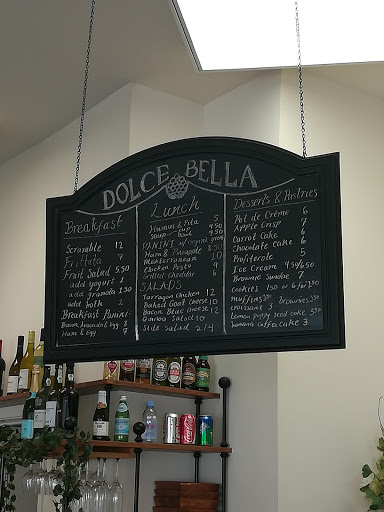 DOLCE BELLA
Breakfast
Scramble 12
Frittata 7
Fruit Salad 5.50
add yogurt 1
add granola 1.50
add both 2
Breakfast Panini
Bacon, Avocado & Egg 8
Ham & Egg 7
Lunch
Humus & Pita 5
Soup cup 4.50
bowl 7.50
PANINI w/ organic greens
Ham & Pineapple 8.50
Mediterranean 10
Chicken Pesto 9
Grilled Cheddar 8
SALADS
Tarragon Chicken 12
Baked Goat Cheese 10
Bacon Blue Cheese 12
Quinoa Salad 10
Side Salad 2/4
Desserts & Pastries
Pot de Crème 6
Apple Crisp 7
Carrot Cake 6
Chocolate Cake 6
Profiterole 5
Ice Cream 4.50/6.50
Brownie Sundae 7
Cookies 1.50 or 6 for 7.50
Muffins 2.50 brownies 3.50
croissant 3
Lemon poppy seed cake 3.50
banana Coffee Cake 3
Coca-Cola